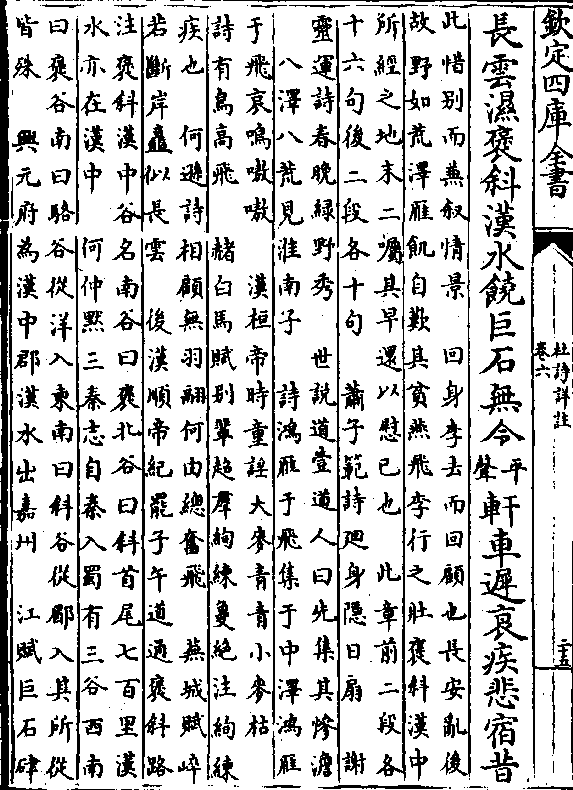 欽定四庫全書
杜詩詳註
卷六
二十五
長雲濕褒斜漢水饒巨石無令平聲軒車遲哀疾悲宿昔
此惜别而兼叙情景　回身李去而回顧也長安亂後
故野如荒澤雁飢自歎其貧燕飛李行之壯褒斜漢中
所經之地末二囑其早還以慰已也　此章前二段各
十六句後二段各十句　蕭子範詩廻身隱日扇　謝
靈運詩春晚緑野秀　世説道壹道人曰先集其慘澹
八澤八荒見淮南子　詩鴻雁于飛集于中澤鴻雁
于飛哀鳴嗷嗷　漢桓帝時童謡大麥青青小麥枯
詩有鳥高飛　赭白馬賦别輩越羣絢練夐絶注絢練
疾也　何遜詩相顧無羽翮何由總奮飛　蕪城賦崪
若斷岸矗似長雲　後漢順帝紀罷子午道通褒斜路
注褒斜漢中谷名南谷曰褒北谷曰斜首尾七百里漢
水亦在漢中　何仲黙三秦志自秦入蜀有三谷西南
曰褒谷南曰駱谷從洋入東南曰斜谷從郿入其所從
皆殊　興元府為漢中郡漢水出嘉州　江賦巨石硉